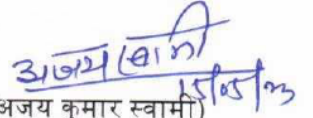 अजय स्वामी
15/05/23
अजय कुमार स्वामी)